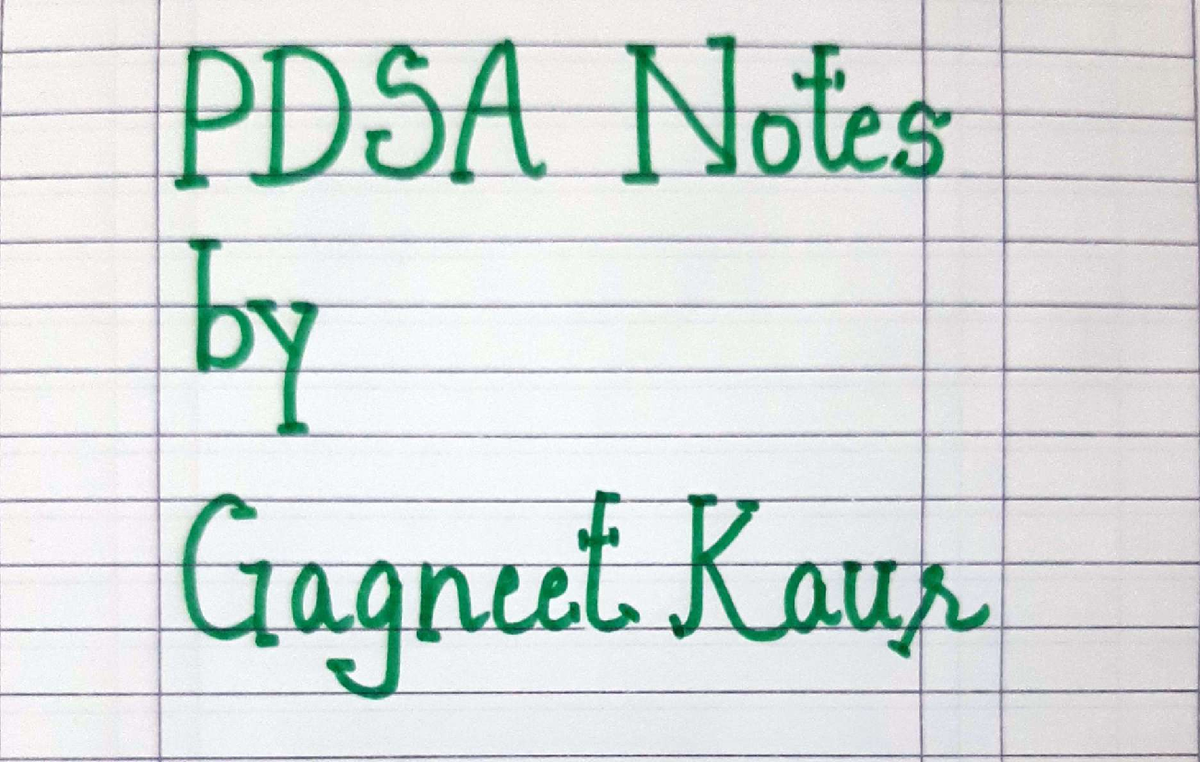 PDSA Notes
by
Gagneet Kaur